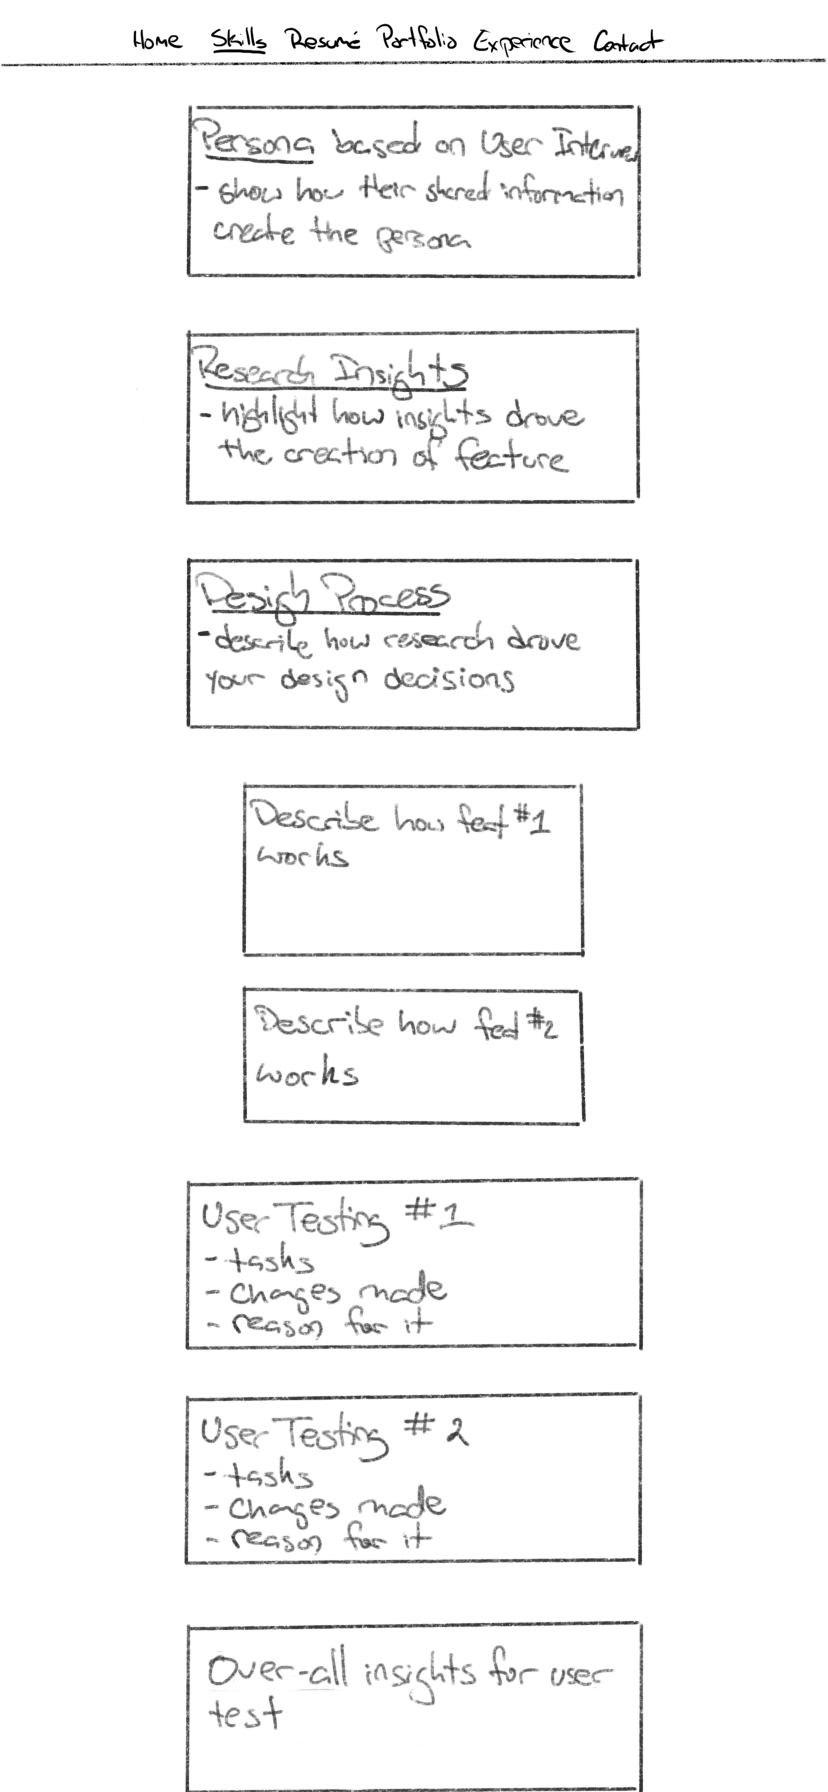 Home Skills Resumé Portfolio Experience Contact
Persona based on User Interview
- show how their shared information
create the persona
Research Insights
- highlight how insights drove
the creation of feature
Design Process
- describe how research drove
your design decisions
Describe how feat #1
works
Describe how feat #2
works
User Testing #1
- tasks
- changes made
- reason for it
User Testing # 2
- tasks
- changes made
- reason for it
Over-all insights for user
test